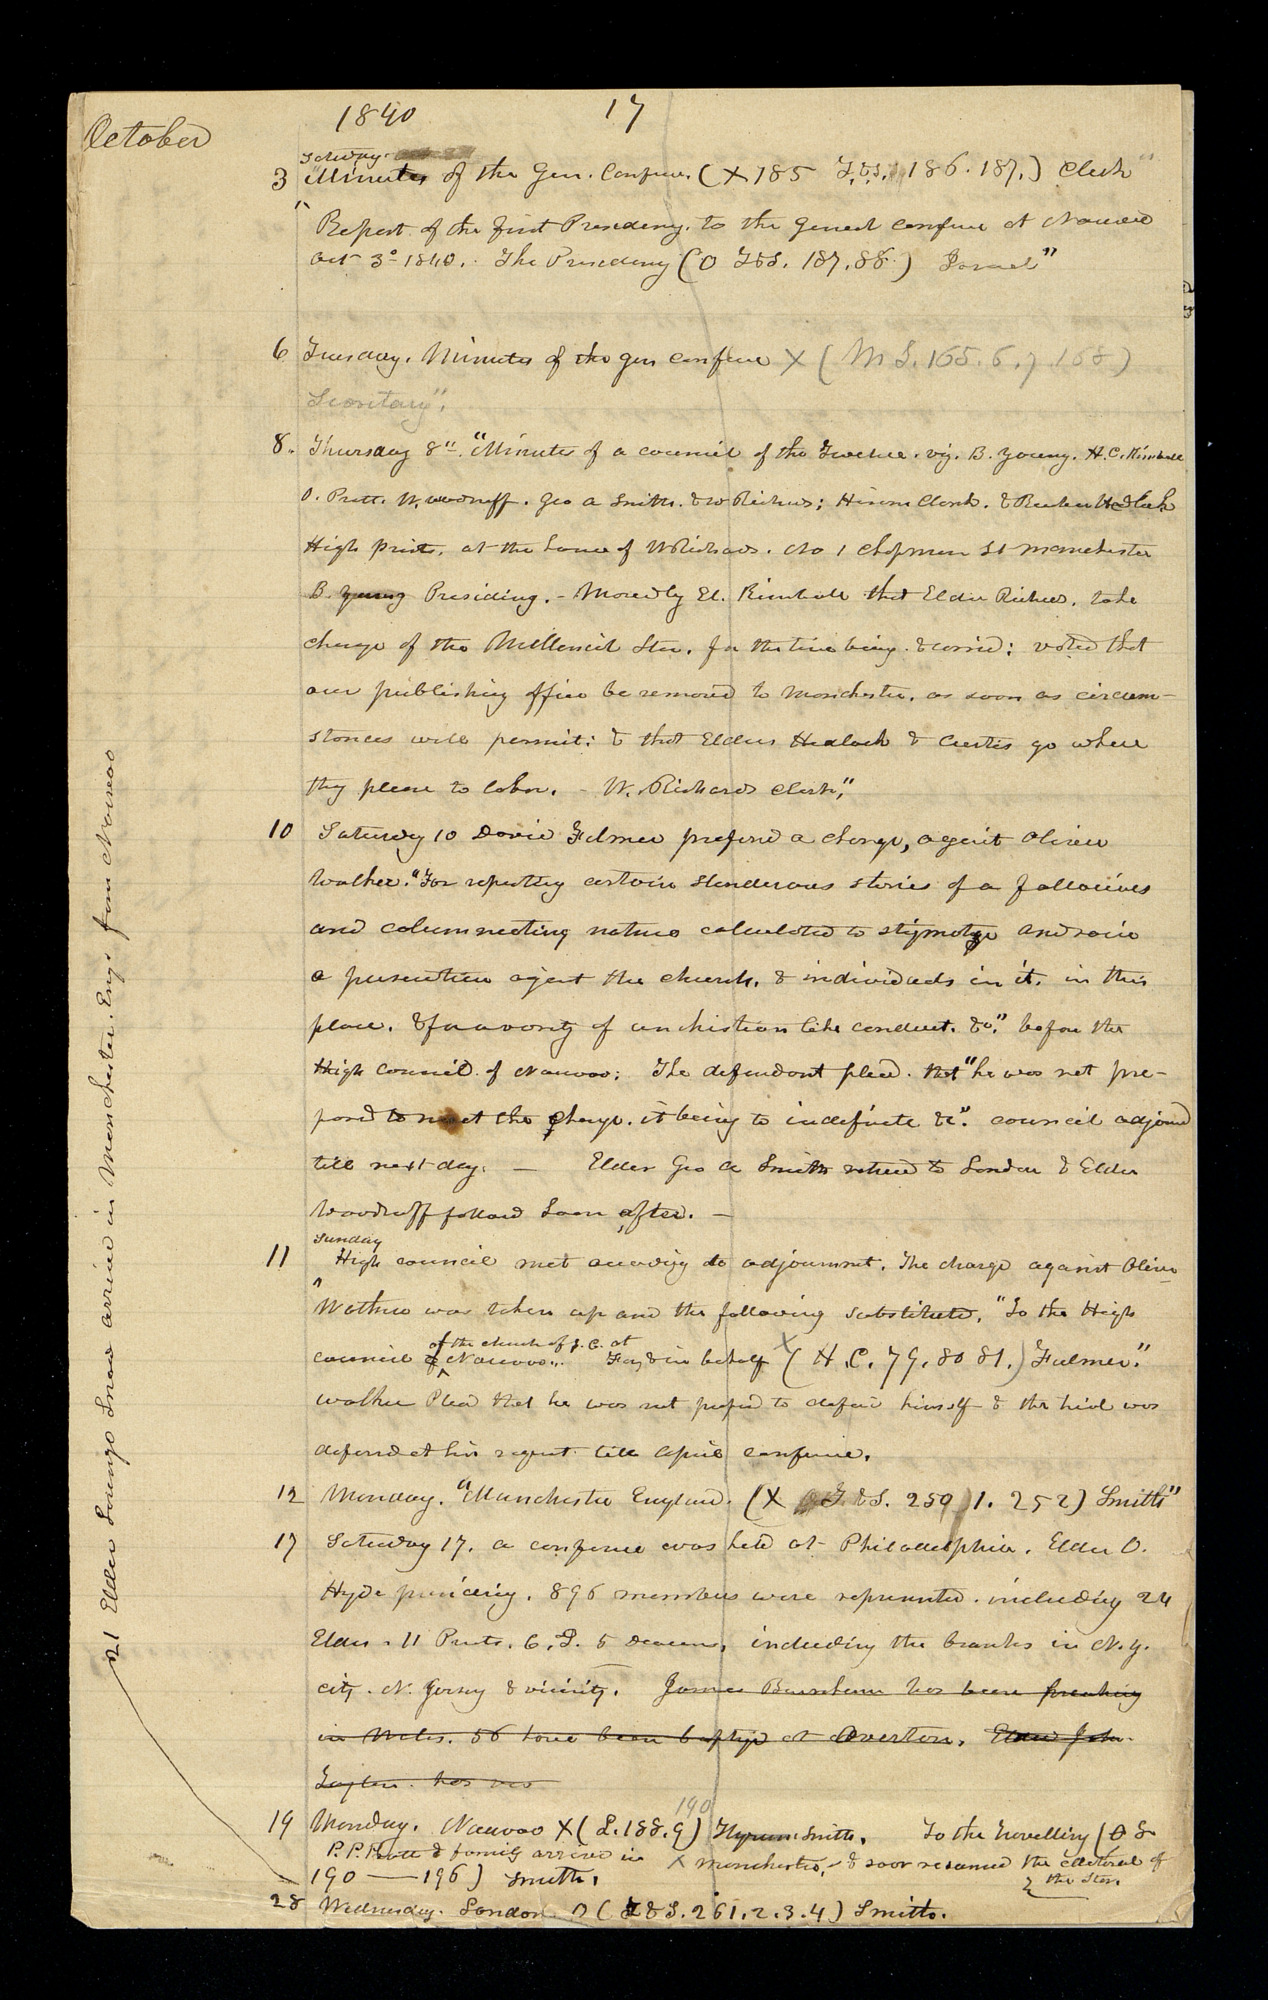 1840 17
October
Saturday
3 "Minutes of the Gen. Confere. (X 185 T.&S. 186. 187.) Clerk"
"Report of the first Presidency. to the general confere at Nauvoo
Oct 3d 1840. The Presidency (O T&S. 187.88.) Israel"
6 Tuesday. Minutes of the gen confere X (M S. 165. 6. 7 168)
Secretary".
8. Thursday 8th. "Minutes of a council of the Twelve. viz. B. Young. H. C. Kimball
O. Pratt. W. Woodruff. Geo A Smith. & W Richards; Hiram Clark. & Reuben Hedlock
High Prists. at the house of W Richards. No 1 Chapman St Manchester
B. Young Presiding. - Moved by El. Kimball that Elder Richards. take
charge of the Millennial Star. for the time being. & carried; voted that
our publishing office be removed to Manchester. as soon as circum-
stances will permit; & that Elders Hedlock & Curtis go where
they please to labor. - W. Richards Clerk."
10 Saturday 10 David Fulmer prefered a charge, against Oliver
Walker. "For reporting certain slanderous stories of a fallacious
and calumniating nature calculated to stigmatize and raise
a persecution against the church. & individuals in it. in this
place. & for a variety of unchristian like conduct. &c." before the
High council of Nauvoo; The defendant plead. that "he was not pre-
pared to meet the charge. it being to indefinite &c". council adjourned
till next day. — Elder Geo A Smith returned to London & Elder
Woodruff followed soon after. —
Sunday
11 High council met according to adjournment. The charge against Oliver
Walker was taken up and the following substituted. "To the High
of the church of J. C. at
council of Nauvoo.. For & in behalf X (H. C. 79. 80 81.) Fulmer."
Walker Plead that he was not prepared to defend himself & the trial was
defered at his request till April confere.
12 Monday. "Manchester England. (X T. &S. 250 1. 252) Smith"
17 Saturday 17. a conference was held at Philadelphia. Elder O.
Hyde presiding. 896 members were represented. including 24
Elders. 11 Priests. 6. T. 5 Deacons, including the branches in N. Y.
city. N. Jersey & vicinity. James Burnham has been preaching
in Wales. 56 have been baptized at Overton. Elder John
Taylor. has
190
19 Monday. Nauvoo X (L. 188. 9) Hyrum Smith. To the travelling (O &
P. P. Pratt & family arrived in X Manchester, & soon resumed the editorial of
the Star.
190 — 196) Smith.
28 Wednesday. London. O (T &S. 261. 2. 3. 4) Smith.
21 Elder Lorenzo Snow arrived in Manchester. Eng. from Nauvoo